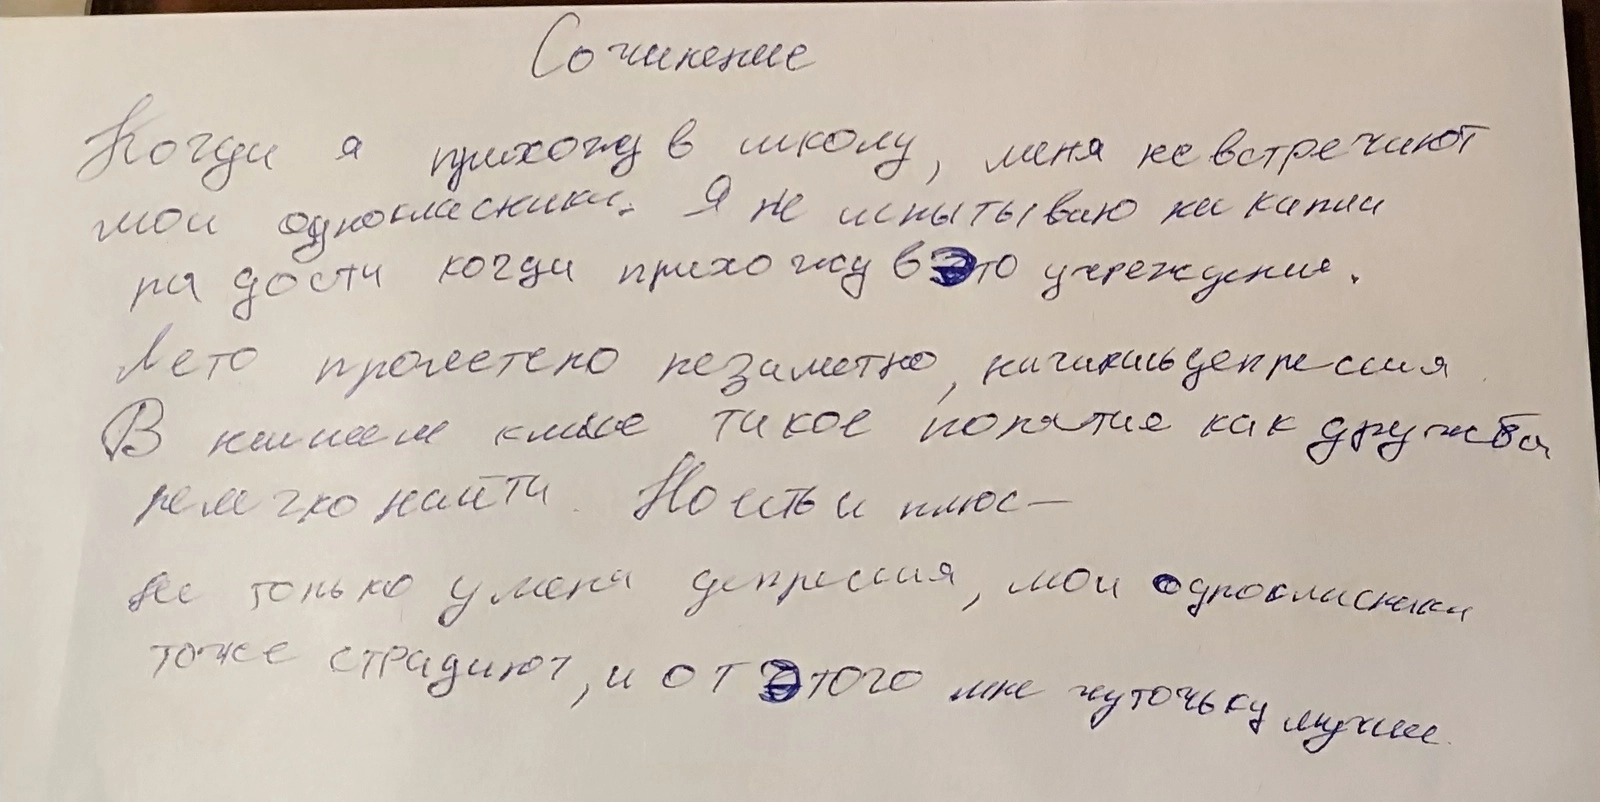 Сочинение
Когда я прихожу в школу, меня не встречают
мои однокласники. Я не испытываю ни капли
радости когда прихожу в это учреждения.
Лето пролетело незаметно, началась депрессия
В нашем класе такое понятие как дружба
не легко найти. Но есть и плюс —
не только у меня депрессия, мои одноклисники
тоже страдают, и от этого мне чуточьку лучше.